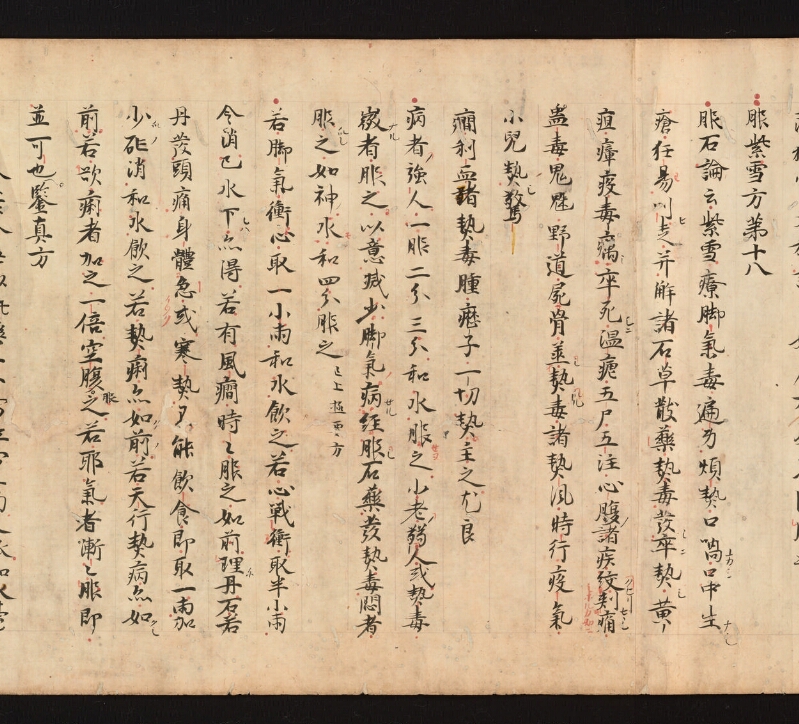 服紫雪方第十八
服石論云紫雪療脚氣毒遍身煩熱口喎口中生
瘡狂易叫走并解諸石草散藥熱毒發卒熱黃
疸瘴疫毒癘卒死溫瘧五尸五注心腹諸疾㽲刺痛
蠱毒鬼魅野道屍骨蒸熱毒諸熱風時行疫氣
小兒熱驚
癇利血諸熱毒腫癧子一切熱主之尤良
病者強人一服二分三分和水服之少老弱人或熱毒
微者服之以意減少脚氣病經服石藥發熱毒悶者
服之如神水和四分服之已上極要方
若脚氣衝心取一小兩和水飲之若心戰衝取半小兩
令消已水下亦得若有風癇時々服之如前理丹石若
丹發頭痛身體急或寒熱不能飲食即取一兩加
少芒消和水飲之若熱痢亦如前若天行熱病亦如
前若欲痢者加之一倍空腹服之若邪氣者漸々服即
並可也鑒真方